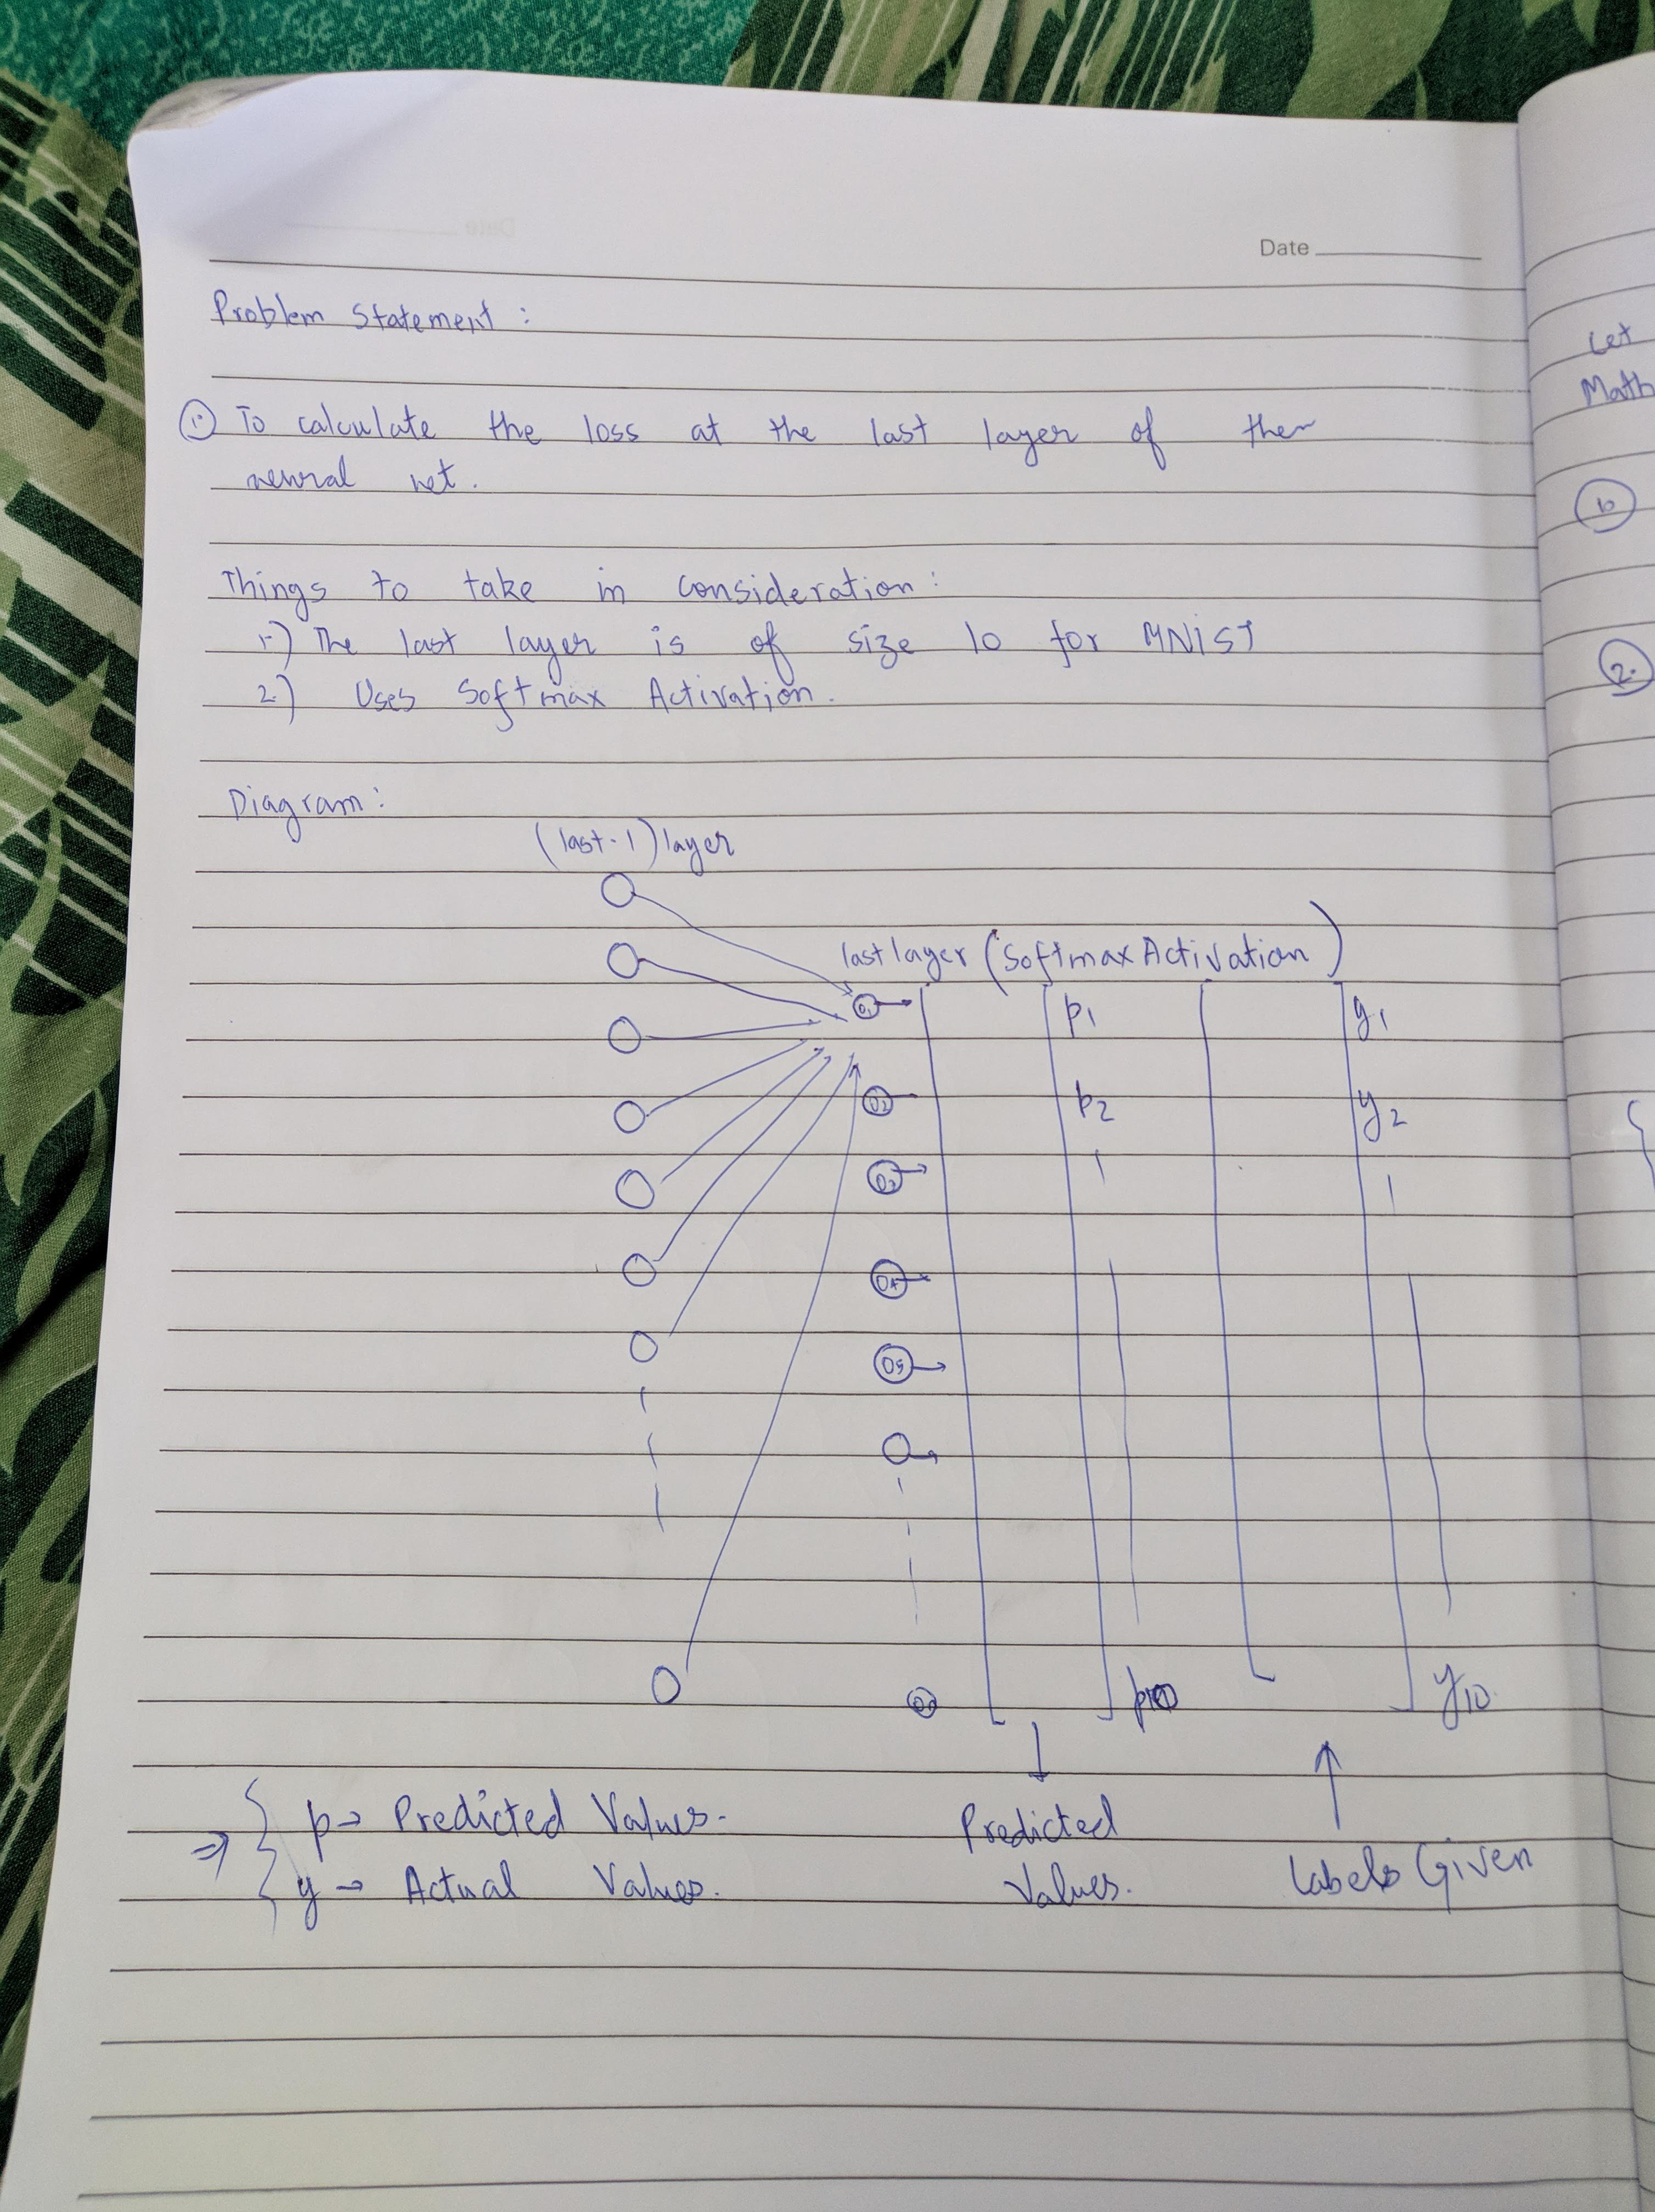 Date
Problem Statement :
1. To calculate the loss at the last layer of then
neural net.
Things to take in consideration :
1.) The last layer is of size 10 for MNIST
2.) Uses Softmax Activation.
Diagram :
(last-1) layer
last layer (Softmax Activation)
O1 p1 y1
O2 p2 y2
O3
O4
O5
p10 y10
⇒ { p → Predicted Values.
y → Actual Values.
Predicted
Values.
Labels Given
Let
Math
1.
2.